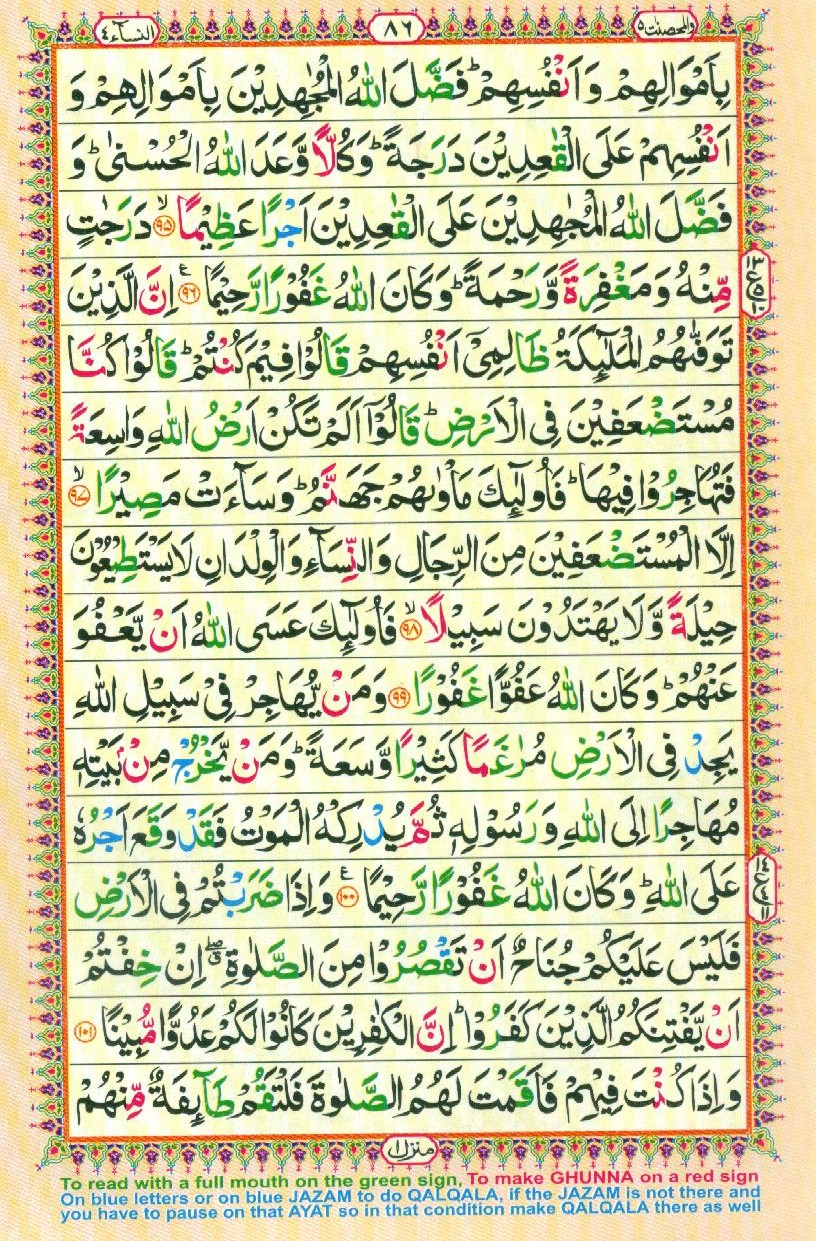 النسآء٤ ٨٦ والمحصنت٥
بِاَمْوَالِهِمْ وَاَنْفُسِهِمْ ؕ فَضَّلَ اللّٰهُ الْمُجٰهِدِيْنَ بِاَمْوَالِهِمْ وَ
اَنْفُسِهِمْ عَلَى الْقٰعِدِيْنَ دَرَجَةً ؕ وَكُلًّا وَّعَدَ اللّٰهُ الْحُسْنٰى ؕ وَ
فَضَّلَ اللّٰهُ الْمُجٰهِدِيْنَ عَلَى الْقٰعِدِيْنَ اَجْرًا عَظِيْمًا ۙ‏﴿۹۵﴾ دَرَجٰتٍ
مِّنْهُ وَمَغْفِرَةً وَّرَحْمَةً ؕ وَكَانَ اللّٰهُ غَفُوْرًا رَّحِيْمًا ﴿۹۶﴾ ع اِنَّ الَّذِيْنَ
تَوَفّٰٮهُمُ الْمَلٰٓٮِٕكَةُ ظَالِمِىْۤ اَنْفُسِهِمْ قَالُوْا فِيْمَ كُنْتُمْ ؕ قَالُوْا كُنَّا
مُسْتَضْعَفِيْنَ فِى الْاَرْضِ ؕ قَالُوْۤا اَلَمْ تَكُنْ اَرْضُ اللّٰهِ وَاسِعَةً
فَتُهَاجِرُوْا فِيْهَا ؕ فَاُولٰٓٮِٕكَ مَاْوٰٮهُمْ جَهَنَّمُ ؕ وَسَآءَتْ مَصِيْرًا ۙ‏﴿۹۷﴾
اِلَّا الْمُسْتَضْعَفِيْنَ مِنَ الرِّجَالِ وَالنِّسَآءِ وَالْوِلْدَانِ لَا يَسْتَطِيْعُوْنَ
حِيْلَةً وَّلَا يَهْتَدُوْنَ سَبِيْلًا ۙ‏﴿۹۸﴾ فَاُولٰٓٮِٕكَ عَسَى اللّٰهُ اَنْ يَّعْفُوَ
عَنْهُمْ ؕ وَكَانَ اللّٰهُ عَفُوًّا غَفُوْرًا ﴿۹۹﴾ وَمَنْ يُّهَاجِرْ فِىْ سَبِيْلِ اللّٰهِ
يَجِدْ فِى الْاَرْضِ مُرٰغَمًا كَثِيْرًا وَّسَعَةً ؕ وَمَنْ يَّخْرُجْ مِنْۢ بَيْتِهٖ
مُهَاجِرًا اِلَى اللّٰهِ وَرَسُوْلِهٖ ثُمَّ يُدْرِكْهُ الْمَوْتُ فَقَدْ وَقَعَ اَجْرُهٗ
عَلَى اللّٰهِ ؕ وَكَانَ اللّٰهُ غَفُوْرًا رَّحِيْمًا ﴿۱۰۰﴾ ع وَاِذَا ضَرَبْتُمْ فِى الْاَرْضِ
فَلَيْسَ عَلَيْكُمْ جُنَاحٌ اَنْ تَقْصُرُوْا مِنَ الصَّلٰوةِ ۖ اِنْ خِفْتُمْ
اَنْ يَّفْتِنَكُمُ الَّذِيْنَ كَفَرُوْا ؕ اِنَّ الْكٰفِرِيْنَ كَانُوْا لَكُمْ عَدُوًّا مُّبِيْنًا ﴿۱۰۱﴾
وَاِذَا كُنْتَ فِيْهِمْ فَاَقَمْتَ لَهُمُ الصَّلٰوةَ فَلْتَقُمْ طَآٮِٕفَةٌ مِّنْهُمْ
منزل١
To read with a full mouth on the green sign, To make GHUNNA on a red sign
On blue letters or on blue JAZAM to do QALQALA, if the JAZAM is not there and
you have to pause on that AYAT so in that condition make QALQALA there as well